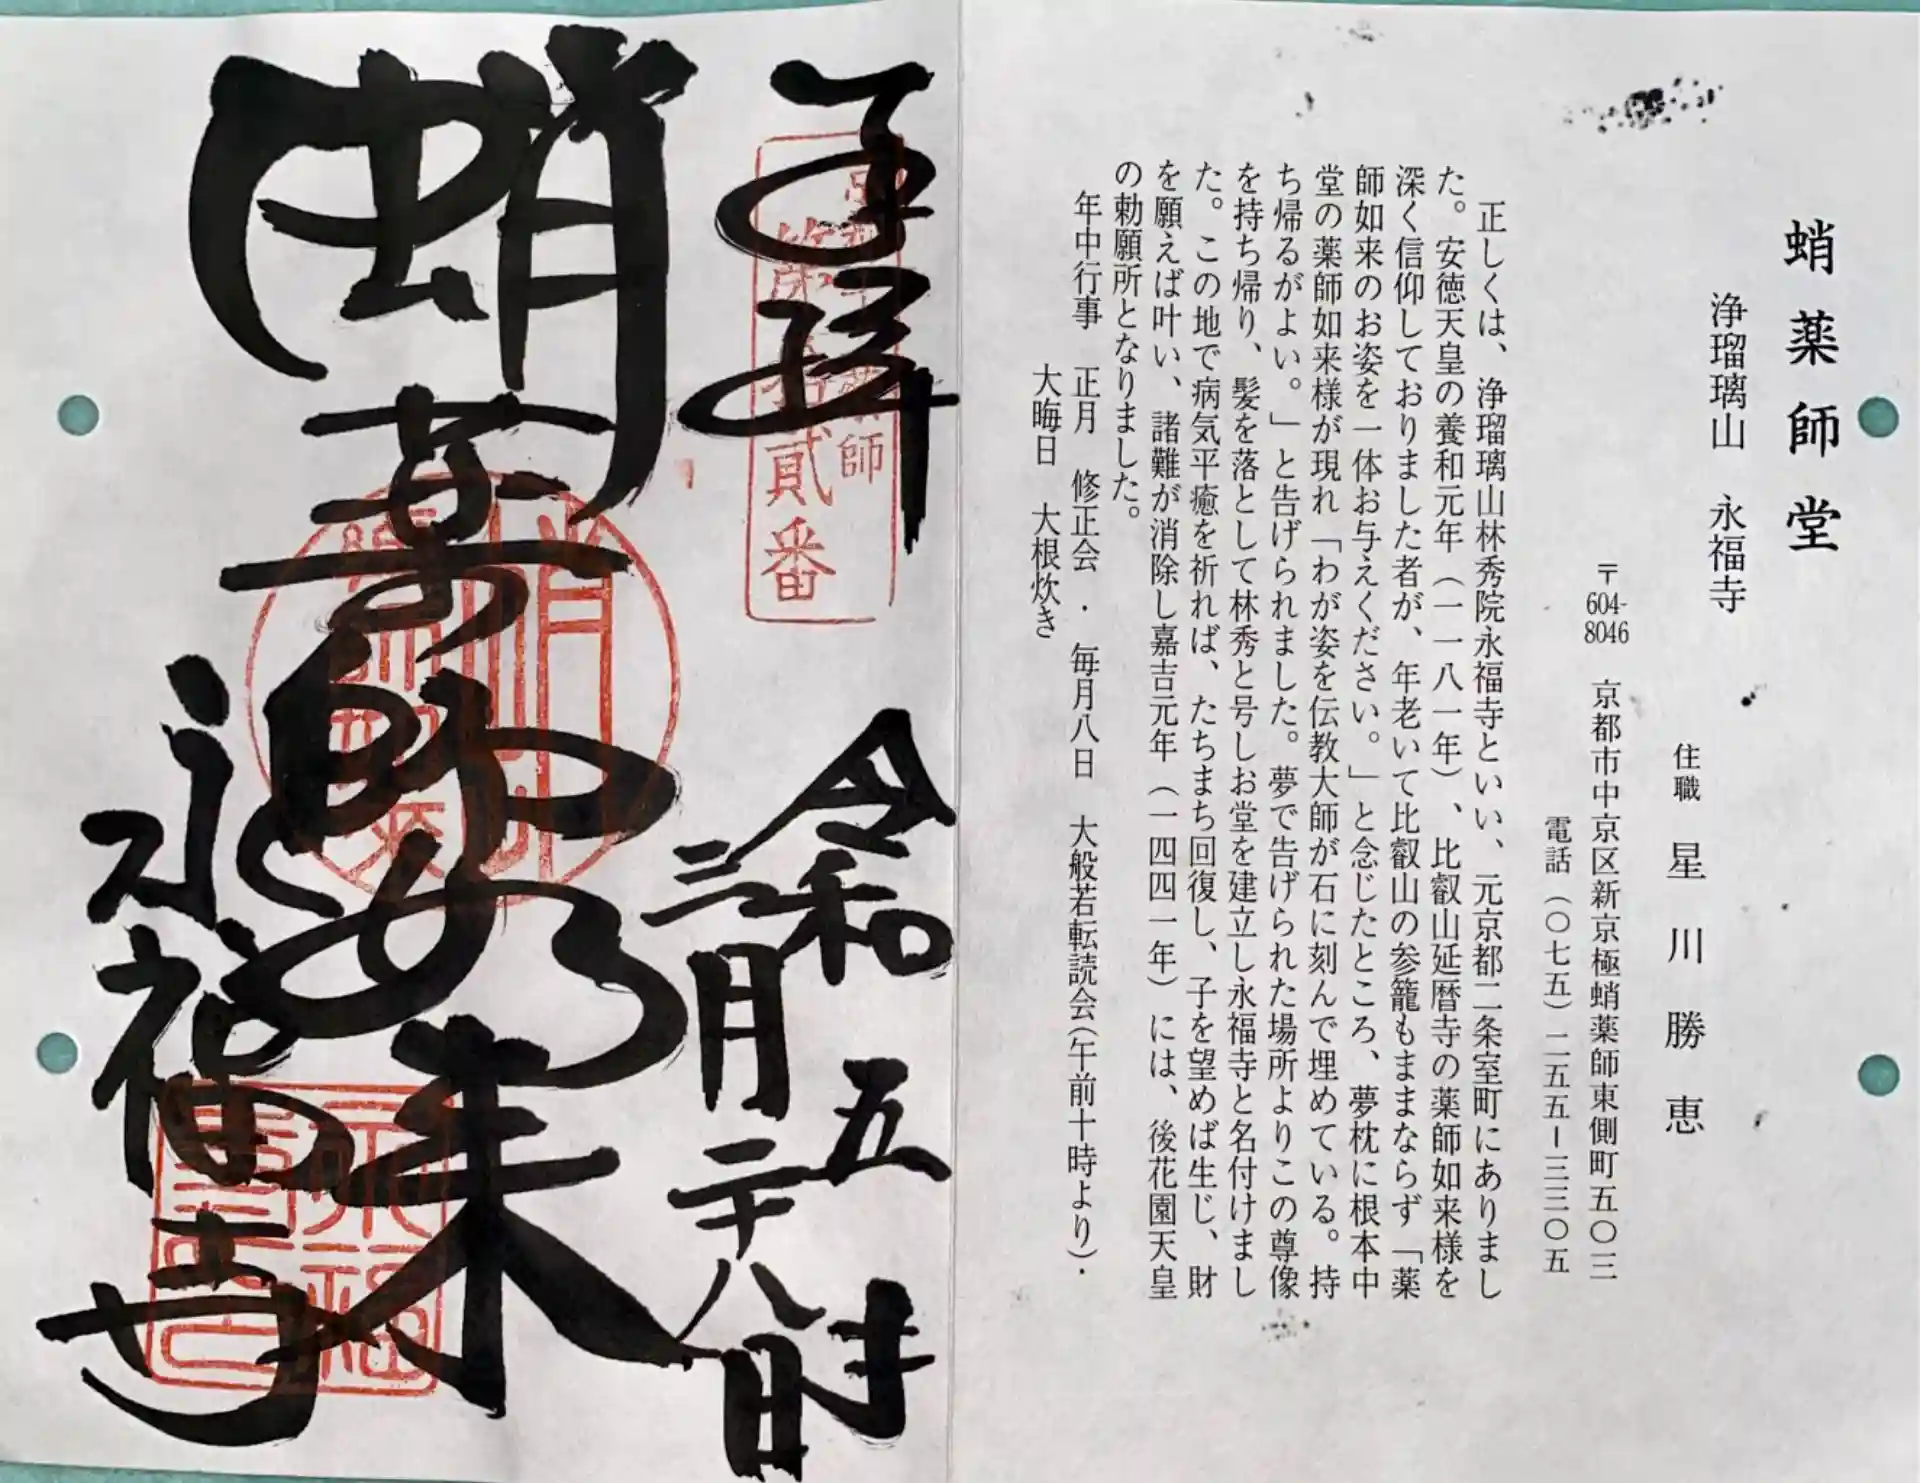 蛸薬師堂
浄瑠璃山　永福寺
住職　星川勝恵
〒604-8046　京都市中京区新京極蛸薬師東側町五〇三
電話（〇七五）二五五ー三三〇五
正しくは、浄瑠璃山林秀院永福寺といい、元京都二条室町にありまし
た。安徳天皇の養和元年（一一八一年）、比叡山延暦寺の薬師如来様を
深く信仰しておりました者が、年老いて比叡山の参籠もままならず「薬
師如来のお姿を一体お与えください。」と念じたところ、夢枕に根本中
堂の薬師如来様が現れ「わが姿を伝教大師が石に刻んで埋めている。持
ち帰るがよい。」と告げられました。夢で告げられた場所よりこの尊像
を持ち帰り、髪を落として林秀と号しお堂を建立し永福寺と名付けまし
た。この地で病気平癒を祈れば、たちまち回復し、子を望めば生じ、財
を願えば叶い、諸難が消除し嘉吉元年（一四四一年）には、後花園天皇
の勅願所となりました。
年中行事　正月　修正会　・　毎月八日　大般若転読会（午前十時より）・
大晦日　大根炊き
奉拝
令和五年
三月二十八日
蛸薬師如来
永福寺
貳番
永福